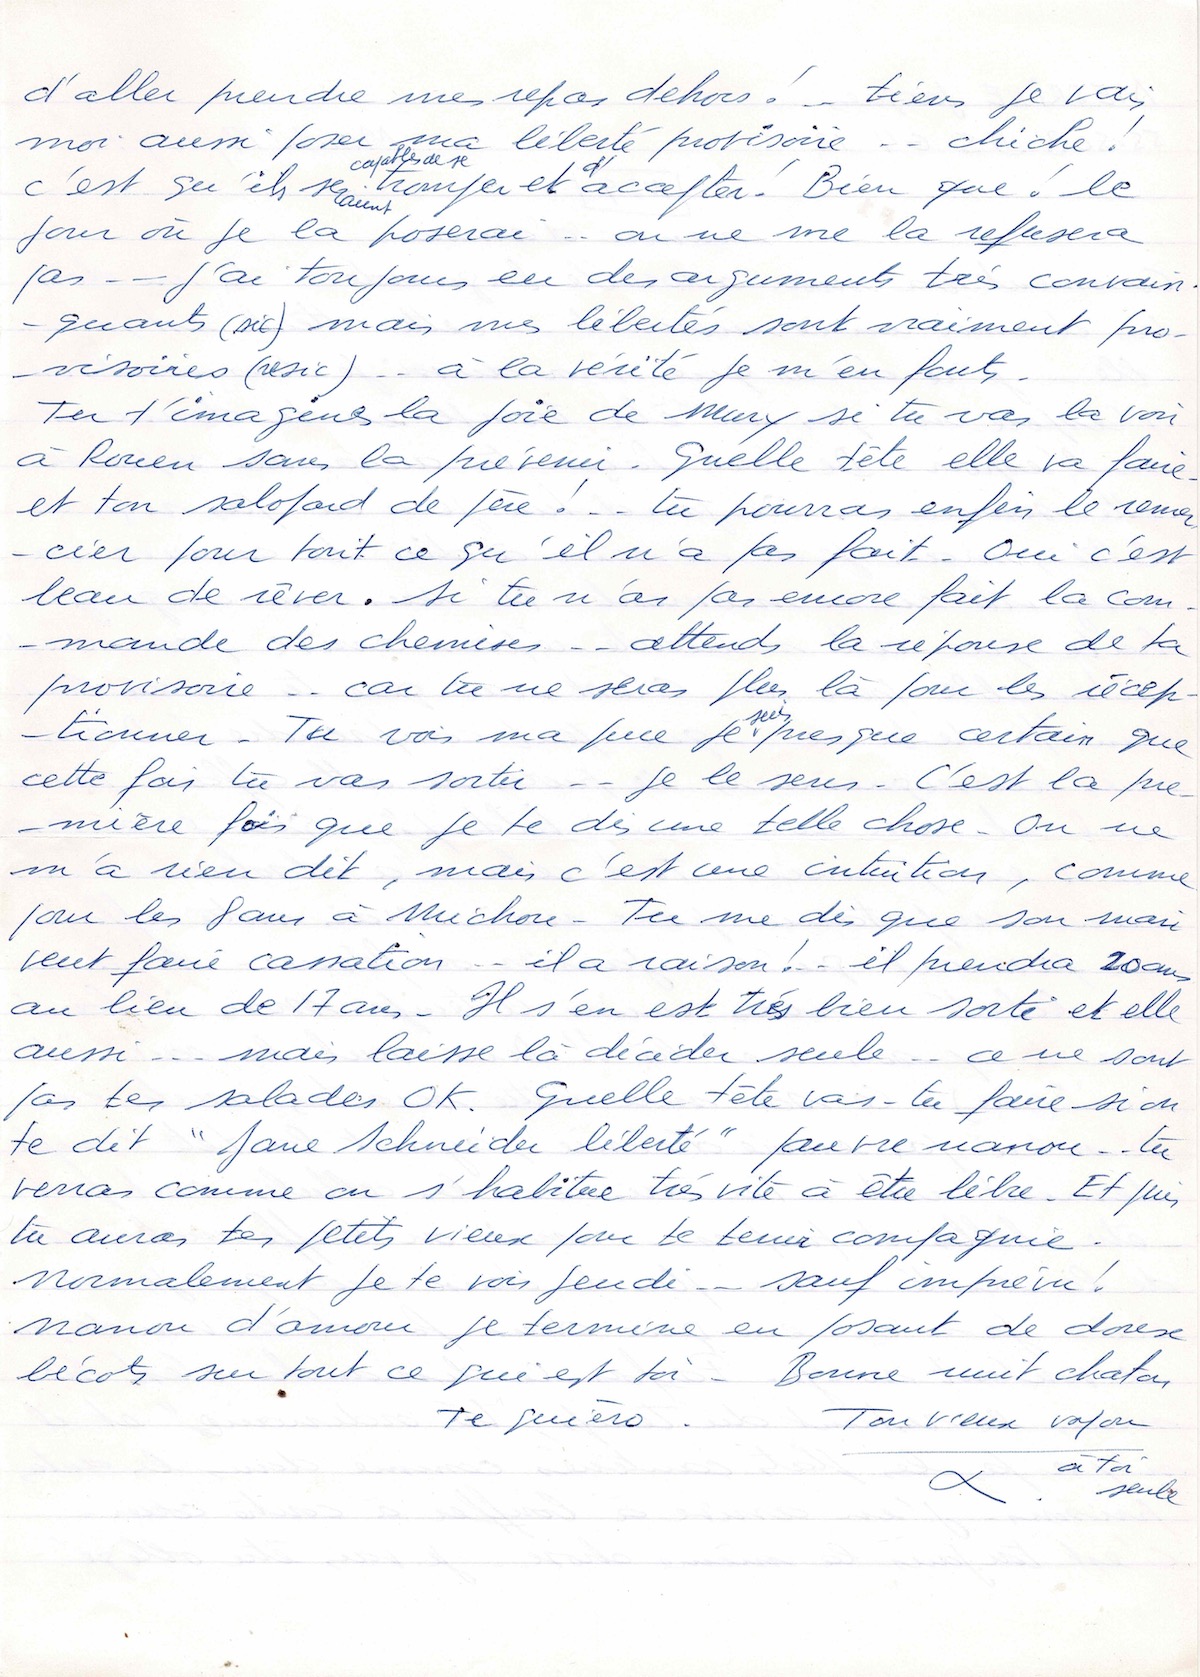 d'aller prendre mes repas dehors ! – tiens je vais
moi aussi poser ma liberté provisoire -- chiche !
c'est qu'ils seraient capables de se tromper et d'accepter ! Bien que ! le
jour où je la poserai -- on ne me la refusera
pas -- j'ai toujours eu des arguments très convain-
-quants (sic) mais mes libertés sont vraiment pro-
-visoires (resic) -- à la vérité je m'en fouts.
Tu t'imagines la joie de Mury si tu vas la voir
à Rouen sans la prévenir. Quelle tête elle va faire
et ton salopard de père ! -- tu pourras enfin le remer
-cier pour tout ce qu'il n'a pas fait. Oui c'est
beau de rêver. Si tu n'as pas encore fait la com-
-mande des chemises -- attends la réponse de ta
provisoire -- car tu ne seras plus là pour les récep-
-tionner. Tu vois ma puce je suis presque certain que
cette fois tu vas sortir -- je le sens. C'est la pre-
-mière fois que je te dis une telle chose. On ne
m'a rien dit, mais c'est une intuition, comme
pour les 8 ans à Michou. Tu me dis que son mari
veut faire cassation -- il a raison ! -- il prendra 20 ans
au lieu de 17 ans. Il s'en est très bien sorti et elle
aussi --- mais laisse là décider seule -- ce ne sont
pas tes salades OK. Quelle tête vas-tu faire si on
te dit " Jane Schneider liberté " pauvre nanou -- tu
verras comme on s'habitue très vite à être libre. Et puis
tu auras tes petits vieux pour te tenir compagnie.
Normalement je te vois jeudi -- sauf imprévu !
Nanou d'amour je termine en posant de doux
bécots sur tout ce qui est toi – Bonne nuit chaton
Te quiéro . Ton vieux voyou
à toi
seule